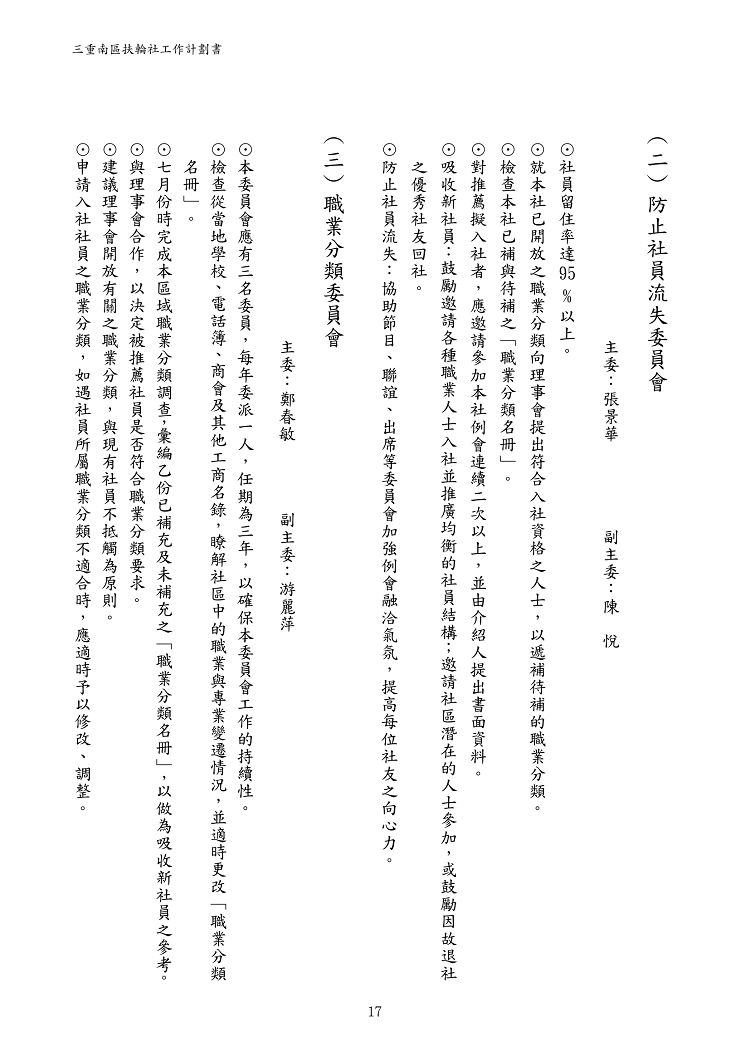 三重南區扶輪社工作計劃書
(二)防止社員流失委員會
主委：張景華　副主委：陳　悅
⊙社員留住率達95%以上。
⊙就本社已開放之職業分類向理事會提出符合入社資格之人士，以遞補待補的職業分類。
⊙檢查本社已補與待補之「職業分類名冊」。
⊙對推薦擬入社者，應邀請參加本社例會連續二次以上，並由介紹人提出書面資料。
⊙吸收新社員：鼓勵邀請各種職業人士入社並推廣均衡的社員結構；邀請社區潛在的人士參加，或鼓勵因故退社
之優秀社友回社。
⊙防止社員流失：協助節目、聯誼、出席等委員會加強例會融洽氣氛，提高每位社友之向心力。
(三)職業分類委員會
主委：鄭春敏　副主委：游麗萍
⊙本委員會應有三名委員，每年委派一人，任期為三年，以確保本委員會工作的持續性。
⊙檢查從當地學校、電話簿、商會及其他工商名錄，瞭解社區中的職業與專業變遷情況，並適時更改「職業分類
名冊」。
⊙七月份時完成本區域職業分類調查，彙編乙份已補充及未補充之「職業分類名冊」，以做為吸收新社員之參考。
⊙與理事會合作，以決定被推薦社員是否符合職業分類要求。
⊙建議理事會開放有關之職業分類，與現有社員不抵觸為原則。
⊙申請入社社員之職業分類，如遇社員所屬職業分類不適合時，應適時予以修改、調整。
17